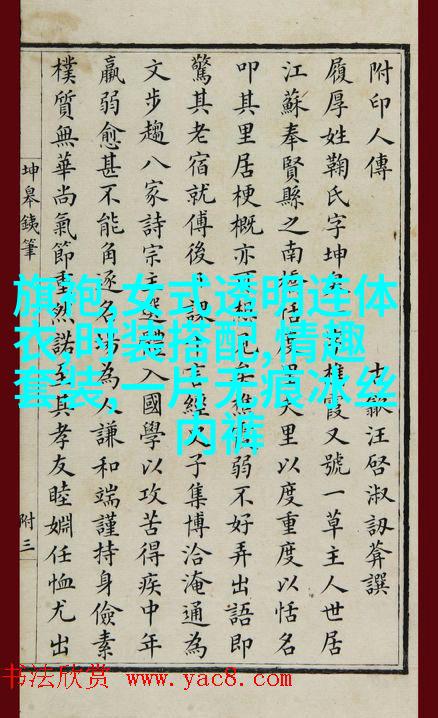 附印人傳 古歙汪啓淑訒葊撰
履厚姓鞠氏字坤 樵霞又號一草主人世居
江蘇奉賢縣之南橋 大里以度重度以恬名
叩其里居梗概亦 弱不好弄出語即
驚其老宿就傅後 經 子集博洽淹通為
文步趨八家詩宗 入國學以攻苦得疾中年
羸弱愈甚不能角逐名 為人謙和端謹持身儉素
樸質無華尚氣節重然諾至其孝友睦婣任恤尤出
坤皋鐵筆
附三
旗袍,女式透明连体
衣,时装搭配,情趣
套装,一片无痕冰丝
内裤
书法欣赏 www.yac8.com